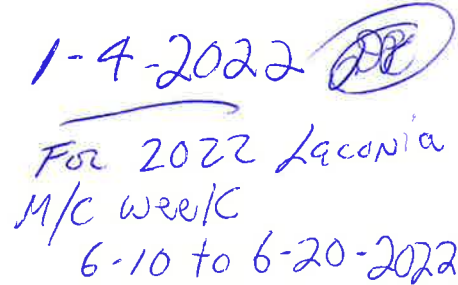 1-4-2022
For 2022 Laconia
M/C week
6-10 to 6-20-2022